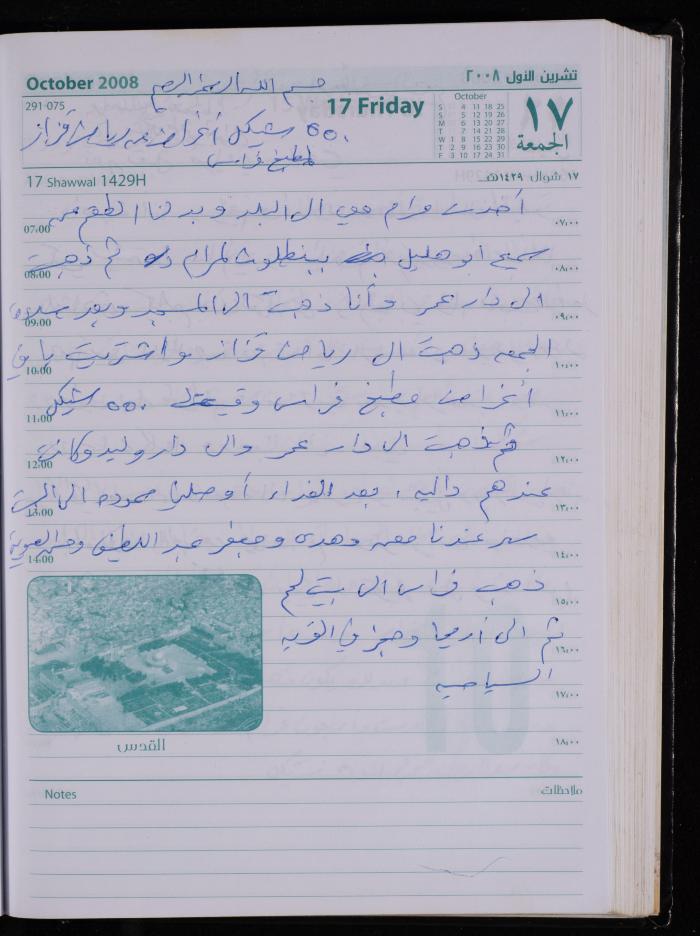 October 2008
تشرين الأول ٢٠٠٨
بسم الله الرحمن الرحيم
291-075
17 Friday
October
S 4 11 18 25
S 5 12 19 26
M 6 13 20 27
T 7 14 21 28
W 1 8 15 22 29
T 2 9 16 23 30
F 3 10 17 24 31
١٧
الجمعة
٥٥٠ شيكل أغراض من رياض قزاز
لمطبخ فراس
17 Shawwal 1429H
١٧ شوال ١٤٢٩هـ
أخذت مرام معي الى البلد وبدلنا الطقم من
07:00 ٠٧:٠٠
سميح ابو هليل ببنطلون لمرام ثم ذهبت
08:00 ٠٨:٠٠
الى دار عمر وأنا ذهبت الى المسجد وبعد صلاة
09:00 ٠٩:٠٠
الجمعه ذهبت الى رياض قزاز واشتريت باقي
10:00 ١٠:٠٠
أغراض مطبخ فراس ٥٥٠ شيكل
11:00 ١١:٠٠
ثم ذهبت الى دار عمر والى دار وليد وكانت
12:00 ١٢:٠٠
عندهم داليه، بعد الغداء أوصلنا حموده الى البيت
13:00 ١٣:٠٠
سهر عندنا معن وهدى وجعفر عبد اللطيف
14:00 ١٤:٠٠
ذهب فراس الى بيت لحم
١٥:٠٠
ثم الى أريحا وحجز في القريه
١٦:٠٠
السياحيه
١٧:٠٠
١٨:٠٠
القدس
Notes
ملاحظات